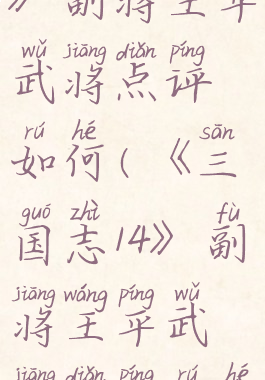 》 副将王平
wǔ jiāng diǎn píng
武将点评
rú hé sān
如何(《三
guó zhì fù
国志14》副
jiāng wáng píng wǔ
将王平武
jiāng diǎn píng rú hé